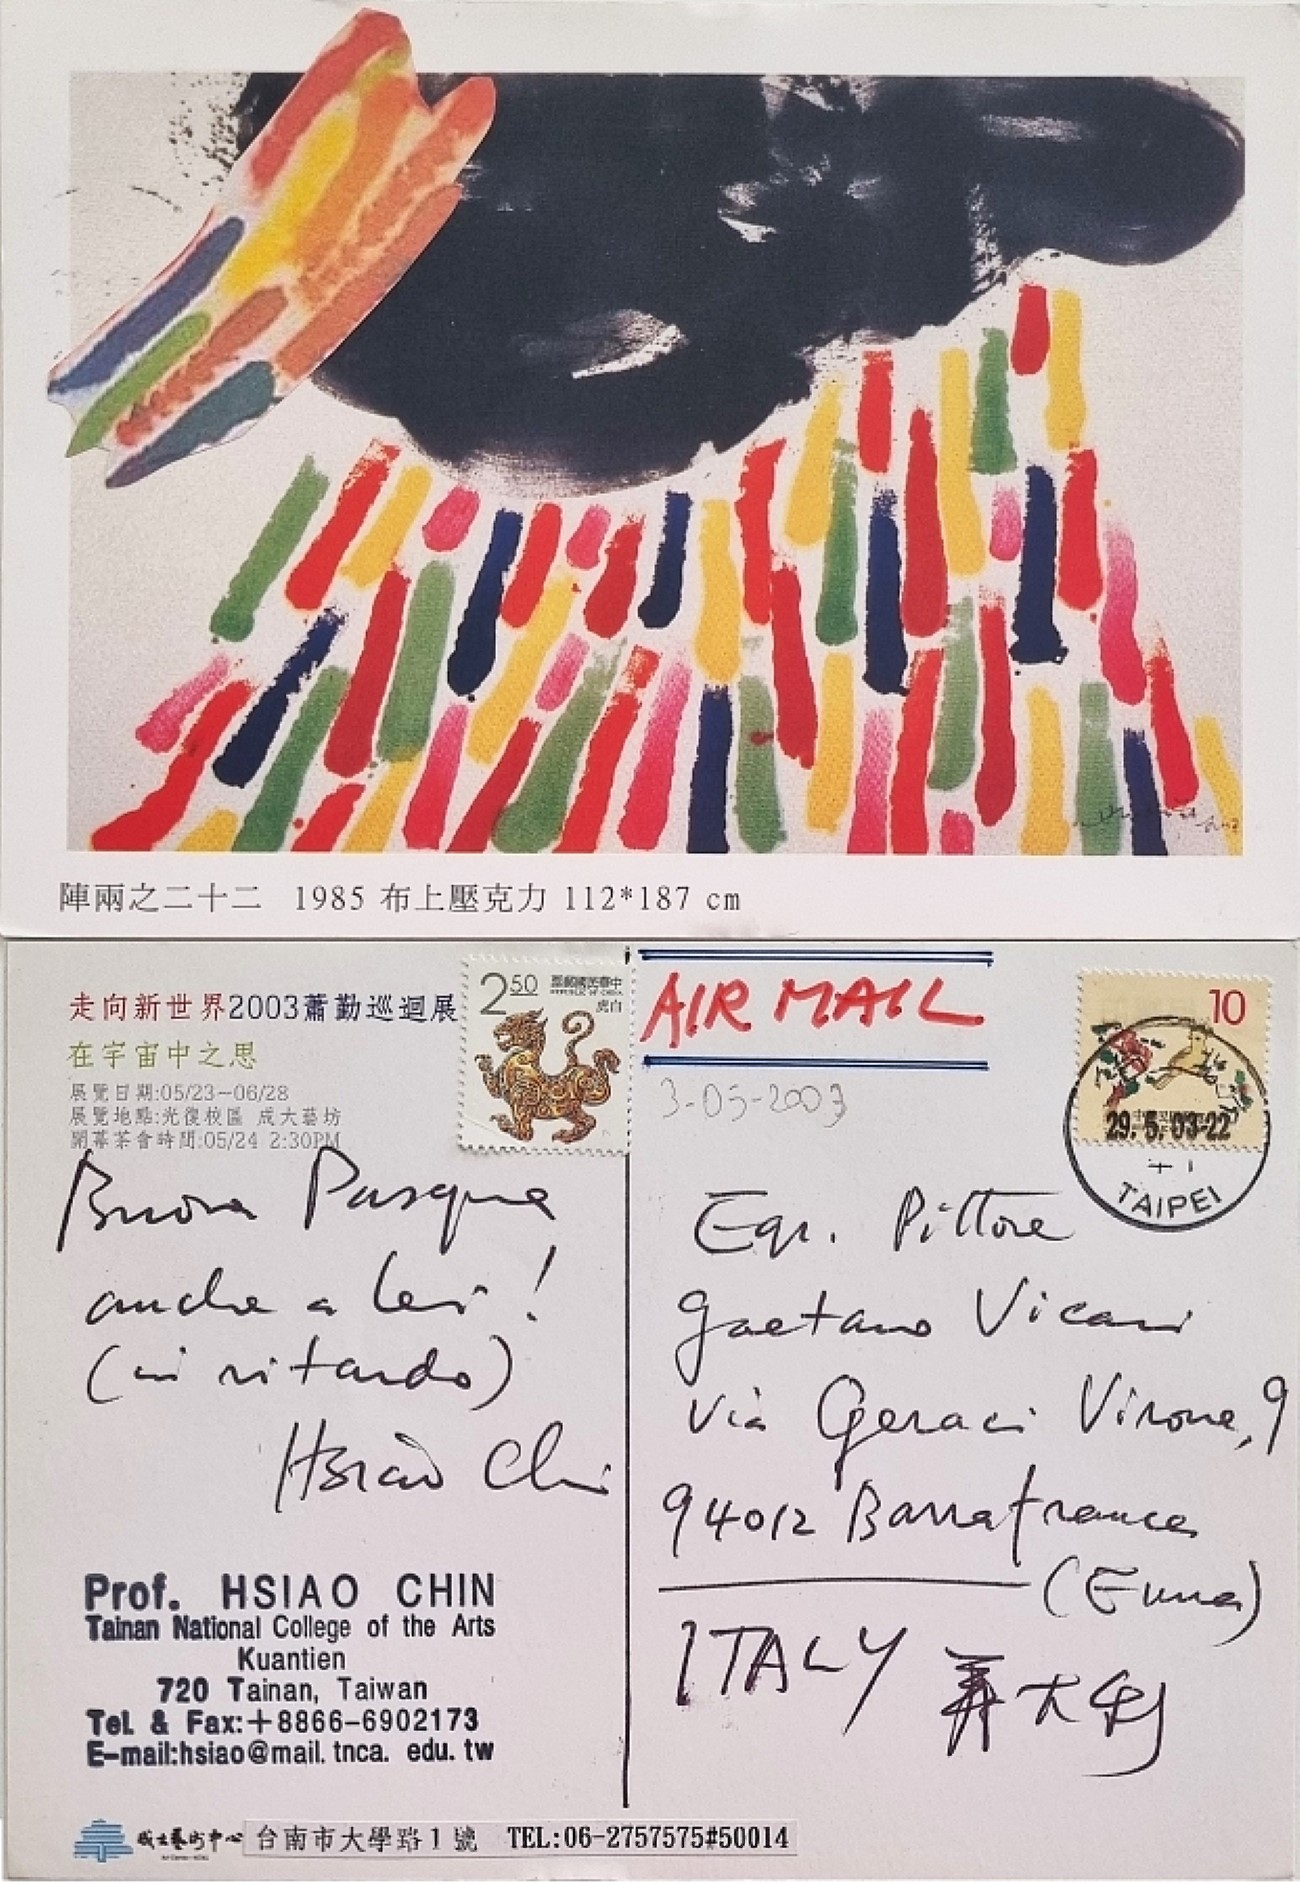 陣兩之二十二 1985 布上壓克力 112*187 cm
走向新世界2003蕭勤巡迴展
在宇宙中之思
展覽日期:05/23-06/28
展覽地點:光復校區 成大藝坊
開幕茶會時間:05/24 2:30PM
2.50 中華民國郵票
REPUBLIC OF CHINA
白虎
AIR MAIL
3-05-2003
10
29.5.03-22
TAIPEI
Buona Pasqua
anche a Lei!
(in ritardo)
Hsiao Chin
Egr. Pittore
Gaetano Vicari
Via Geraci Virone, 9
94012 Barrafranca
(Enna)
ITALY 義大利
Prof. HSIAO CHIN
Tainan National College of the Arts
Kuantien
720 Tainan, Taiwan
Tel. & Fax:+8866-6902173
E-mail:hsiao@mail.tnca.edu.tw
成大藝術中心 台南市大學路1號 TEL:06-2757575#50014